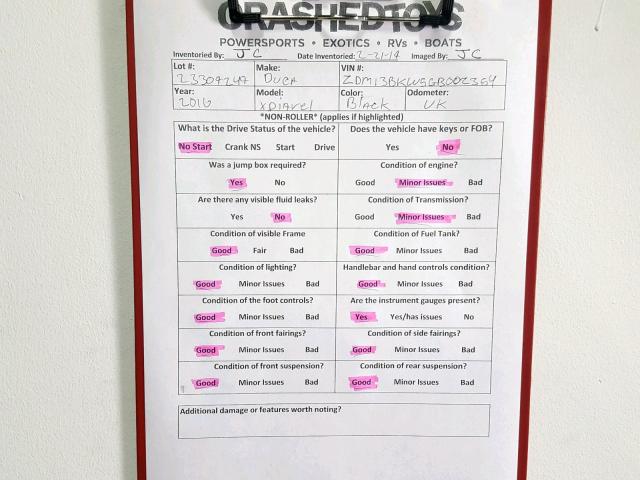 CRASHEDTOYS
POWERSPORTS • EXOTICS • RVs • BOATS
Inventoried By: JC Date Inventoried: 2-21-19 Imaged By: JC
Lot #: Make: VIN #:
Duca
Year: Model: Color: Odometer:
2016 XDiavel Black UK
*NON-ROLLER* (applies if highlighted)
What is the Drive Status of the vehicle? Does the vehicle have keys or FOB?
No Start Crank NS Start Drive Yes No
Was a jump box required? Condition of engine?
Yes No Good Minor Issues Bad
Are there any visible fluid leaks? Condition of Transmission?
Yes No Good Minor Issues Bad
Condition of visible Frame Condition of Fuel Tank?
Good Fair Bad Good Minor Issues Bad
Condition of lighting? Handlebar and hand controls condition?
Good Minor Issues Bad Good Minor Issues Bad
Condition of the foot controls? Are the instrument gauges present?
Good Minor Issues Bad Yes Yes/has issues No
Condition of front fairings? Condition of side fairings?
Good Minor Issues Bad Good Minor Issues Bad
Condition of front suspension? Condition of rear suspension?
Good Minor Issues Bad Good Minor Issues Bad
Additional damage or features worth noting?